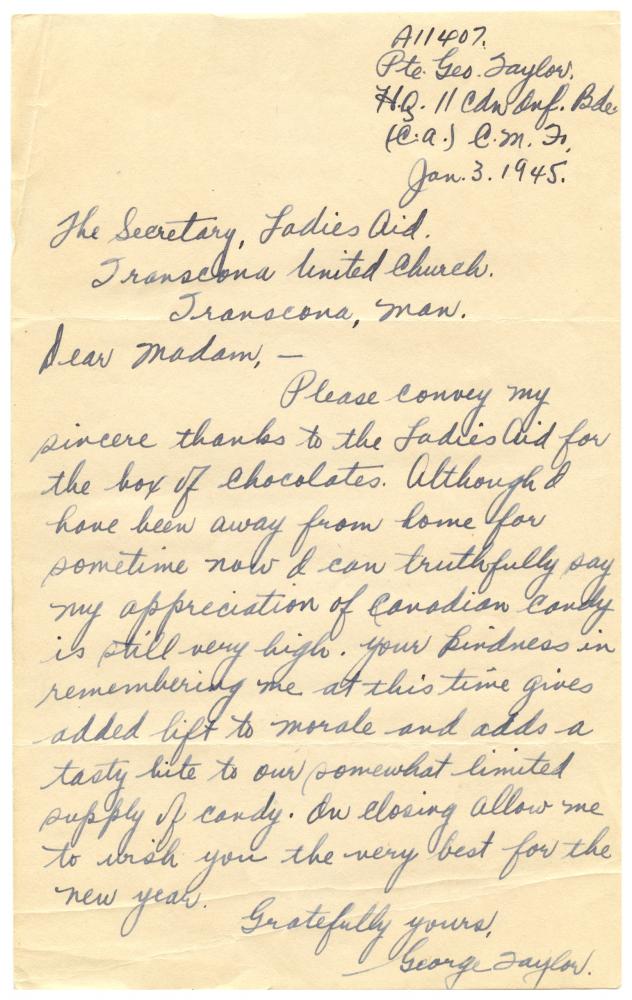 A11407.
Pte. Geo. Taylor.
H.Q. 11 Cdn Inf. Bde.
(C.A.) C.M.F.
Jan. 3. 1945.
The Secretary, Ladies Aid.
Transcona United Church.
Transcona, Man.
Dear Madam, —
Please convey my
sincere thanks to the Ladies Aid for
the box of chocolates. Although I
have been away from home for
sometime now I can truthfully say
my appreciation of Canadian candy
is still very high. Your kindness in
remembering me at this time gives
added lift to morale and adds a
tasty bite to our somewhat limited
supply of candy. In closing allow me
to wish you the very best for the
new year.
Gratefully yours,
George Taylor.